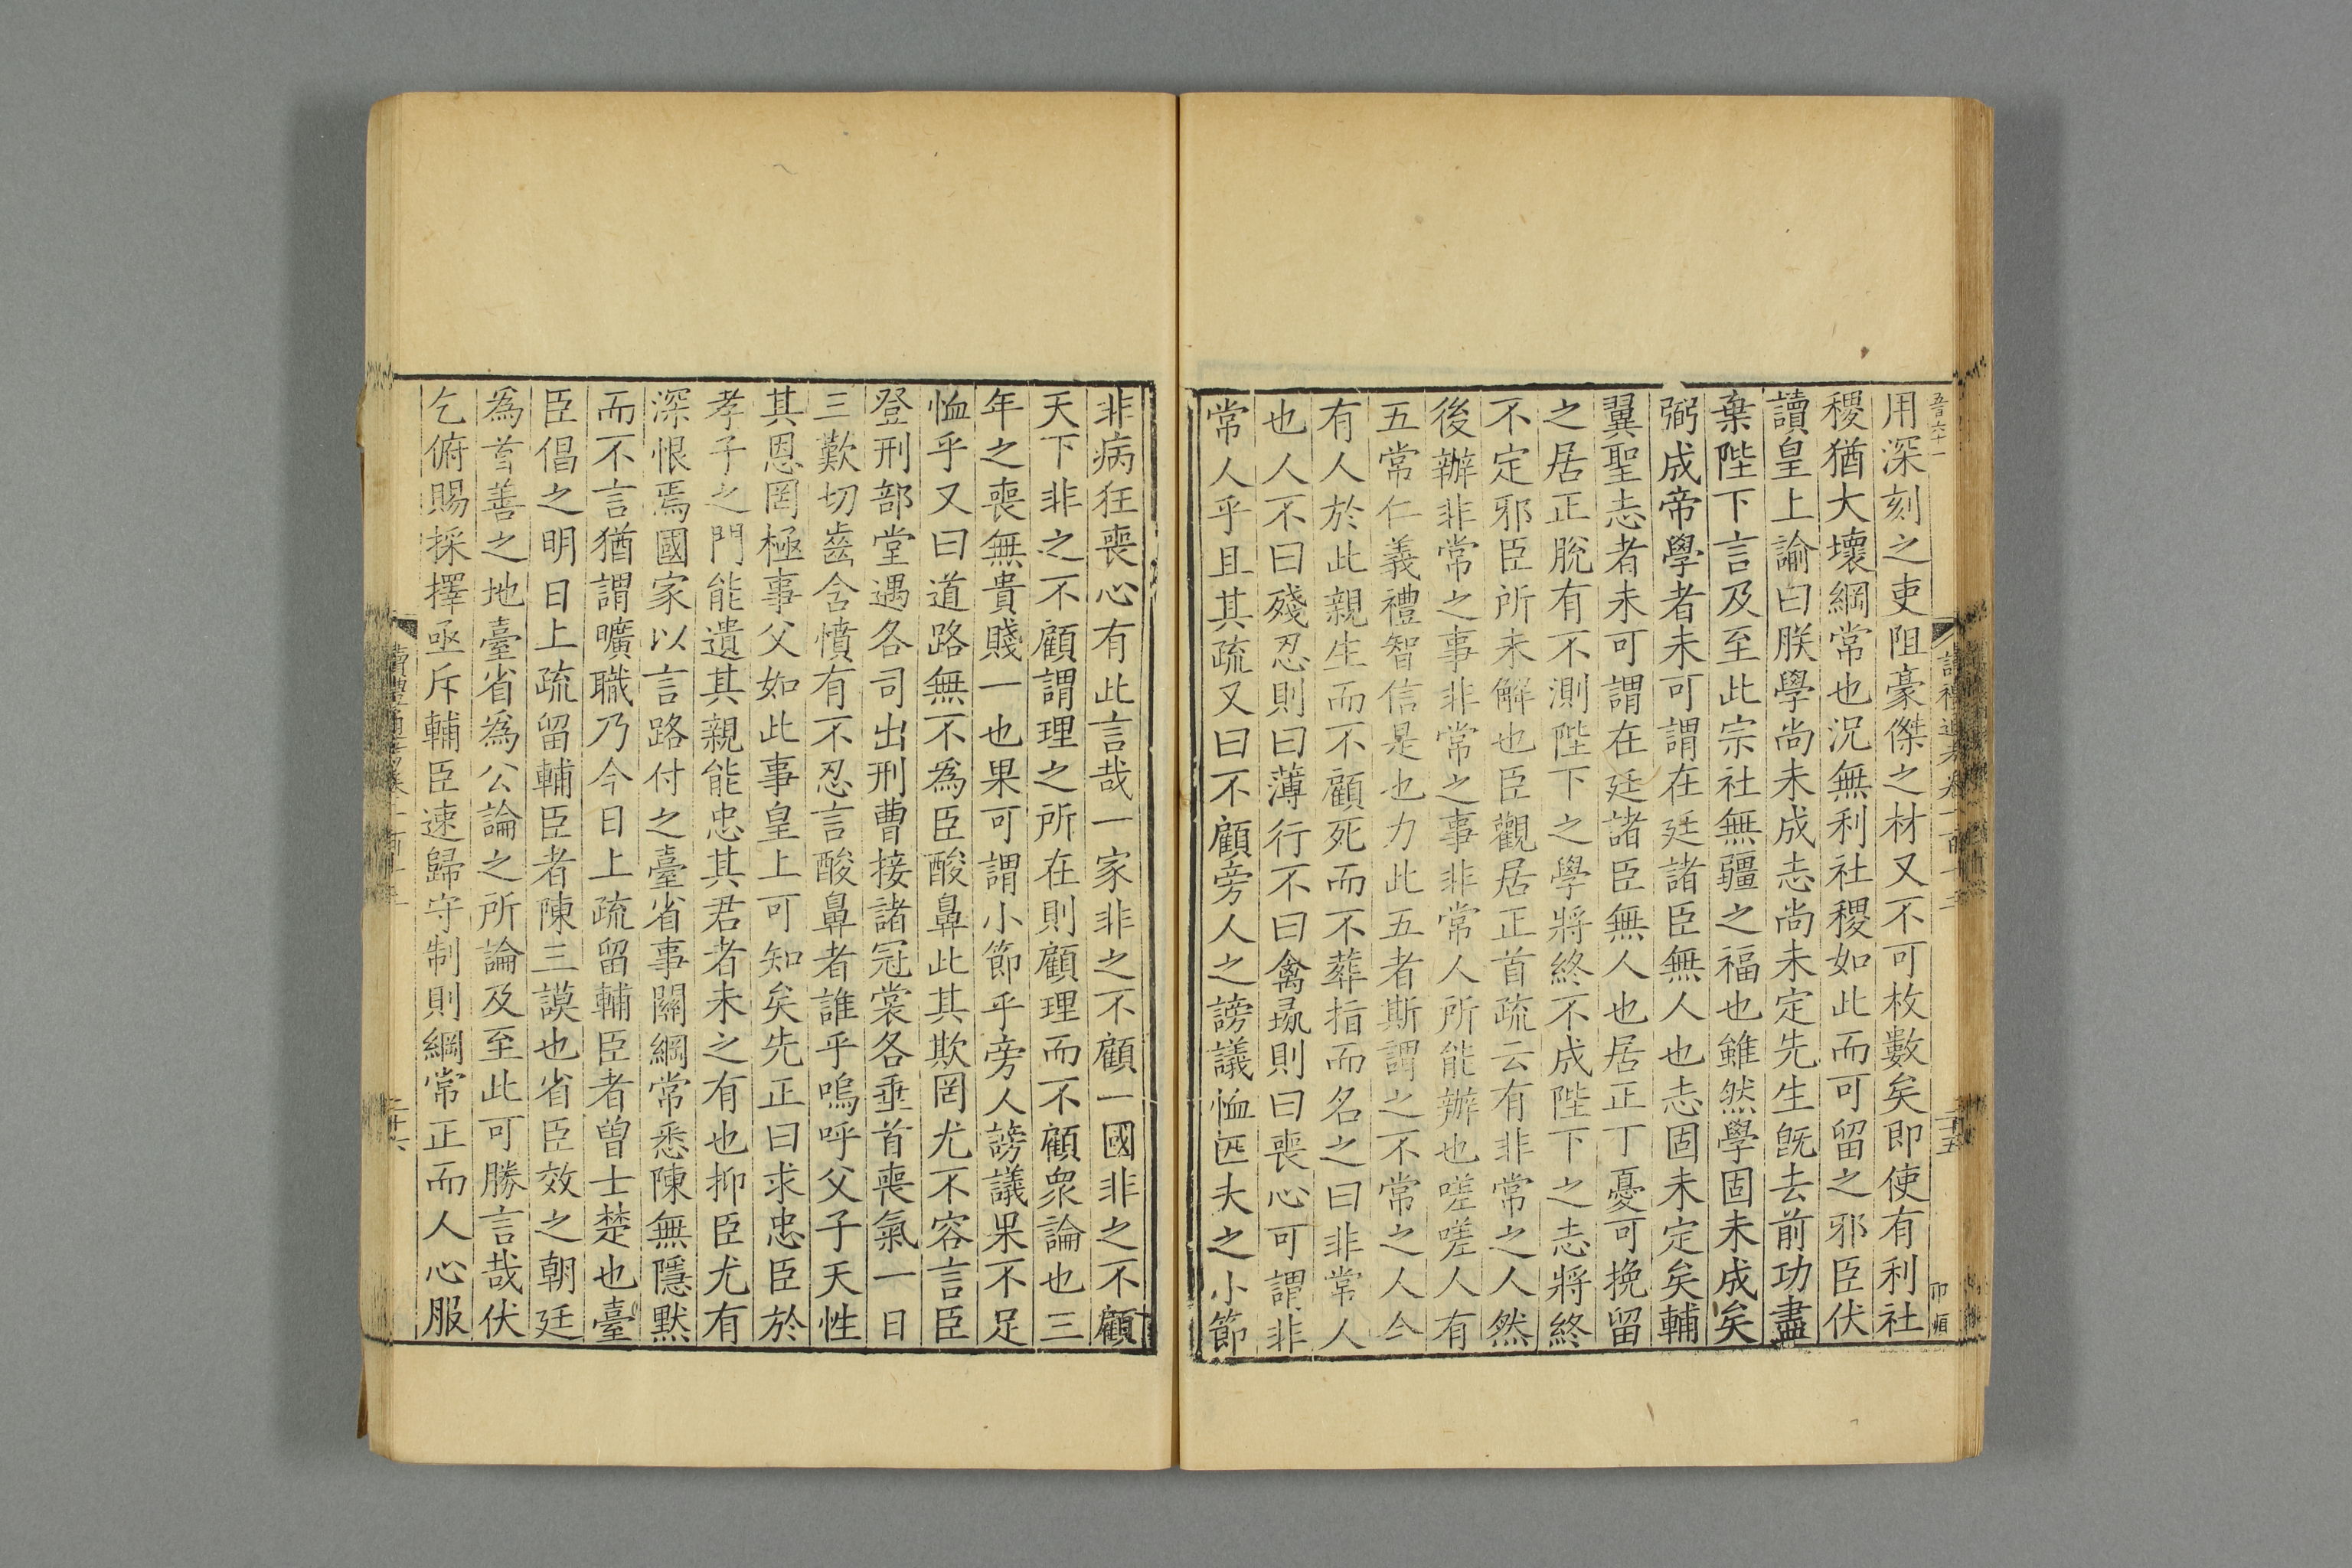 用深刻之吏阻豪傑之材又不可枚數矣即使有利社
稷猶大壞綱常也況無利社稷如此而可留之邪臣伏
讀皇上諭曰朕學尚未成志尚未定先生旣去前功盡
棄陛下言及至此宗社無疆之福也雖然學固未成矣
弼成帝學者未可謂在廷諸臣無人也志固未定矣輔
翼聖志者未可謂在廷諸臣無人也居正丁憂可挽留
之居正脫有不測陛下之學將終不成陛下之志將終
不定邪臣所未解也臣觀居正首疏云有非常之人然
後辦非常之事非常之事非常人所能辦也嗟嗟人有
五常仁義禮智信是也力此五者斯謂之不常之人今
有人於此親生而不顧死而不葬指而名之曰非常人
也人不曰殘忍則曰薄行不曰禽彘則曰喪心可謂非
常人乎且其疏又曰不顧旁人之謗議恤匹夫之小節
非病狂喪心有此言哉一家非之不顧一國非之不顧
天下非之不顧謂理之所在則顧理而不顧衆論也三
年之喪無貴賤一也果可謂小節乎旁人謗議果不足
恤乎又曰道路無不爲臣酸鼻此其欺罔尤不容言臣
登刑部堂遇各司出刑曹接諸冠裳各垂首喪氣一日
三歎切齒含憤有不忍言酸鼻者誰乎嗚呼父子天性
其恩罔極事父如此事皇上可知矣先正曰求忠臣於
孝子之門能遺其親能忠其君者未之有也抑臣尤有
深恨焉國家以言路付之臺省事關綱常悉陳無隱默
而不言猶謂曠職乃今日上疏留輔臣者曾士楚也臺
臣倡之明日上疏留輔臣者陳三謨也省臣效之朝廷
爲首善之地臺省爲公論之所論及至此可勝言哉伏
乞俯賜採擇亟斥輔臣速歸守制則綱常正而人心服